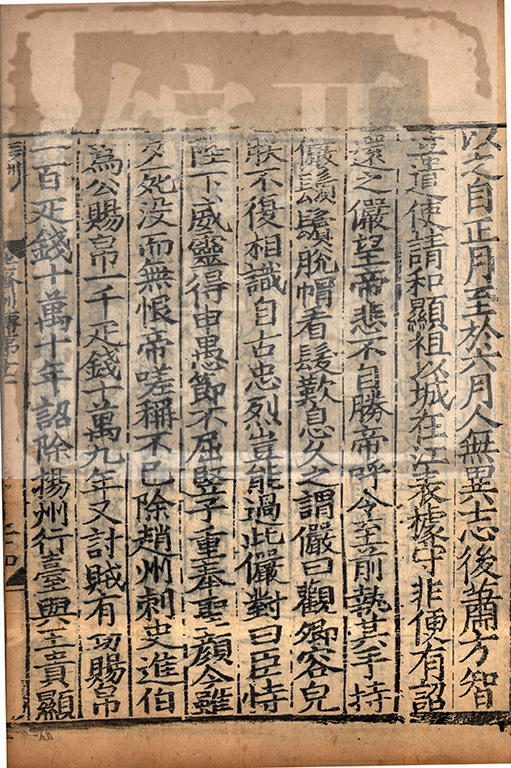 以之自正月至於六月人無異志後蕭方智
立遣使請和顯祖以城在江表據守非便有詔
還之儼望帝悲不自勝帝呼令至前執其手持
儼鬚鬢脫帽看髮歎息久之謂儼曰觀卿容皃
狀不復相識自古忠烈豈能過此儼對曰臣恃
陛下威靈得申愚節不屈豎子重奉聖顔今雖
夕死没而無恨帝嗟稱不已除趙州刺史進伯
為公賜帛一千疋錢十萬九年又討賊有功賜帛
一百疋錢十萬十年詔除揚州行臺與王貴顯